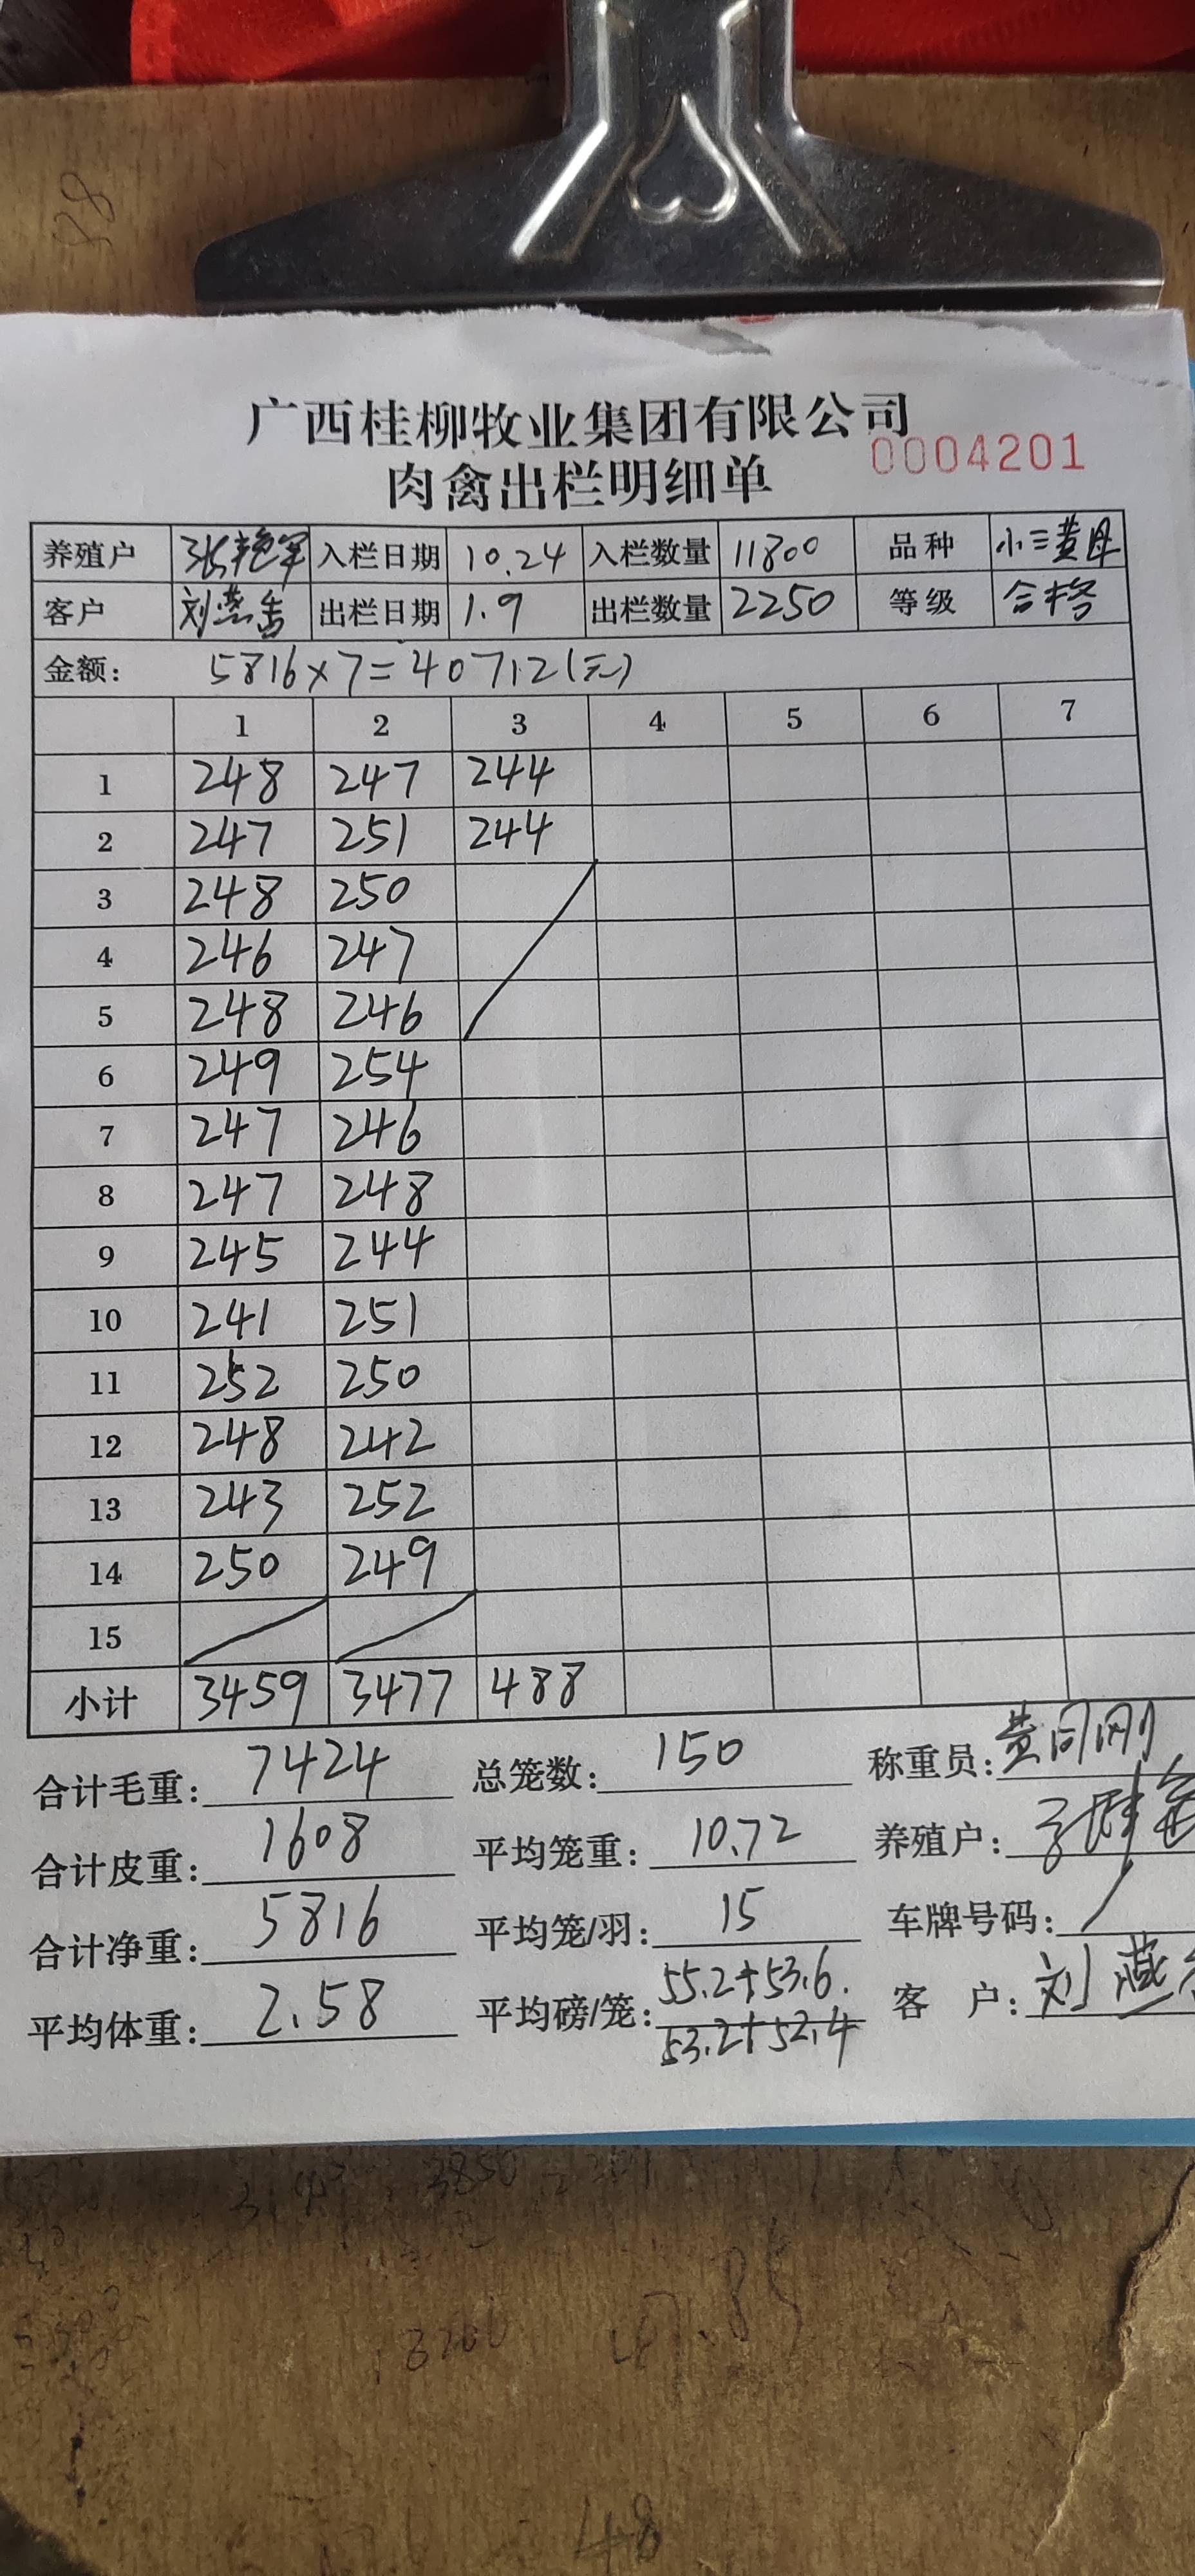 广西桂柳牧业集团有限公司
肉禽出栏明细单 0004201
养殖户 张艳军 入栏日期 10.24 入栏数量 11800 品种 小三黄母
客户 刘燕 出栏日期 1.9 出栏数量 2250 等级 合格
金额: 5816×7=40712(元)
1 2 3 4 5 6 7
1 248 247 244
2 247 251 244
3 248 250
4 246 247
5 248 246
6 249 254
7 247 246
8 247 248
9 245 244
10 241 251
11 252 250
12 248 242
13 243 252
14 250 249
15
小计 3459 3477 488
合计毛重: 7424 总笼数: 150 称重员: 黄同刚
合计皮重: 1608 平均笼重: 10.72 养殖户:
合计净重: 5816 平均笼/羽: 15 车牌号码: /
平均体重: 2.58 平均磅/笼: 55.2+53.6. 客 户: 刘燕
53.2+52.4